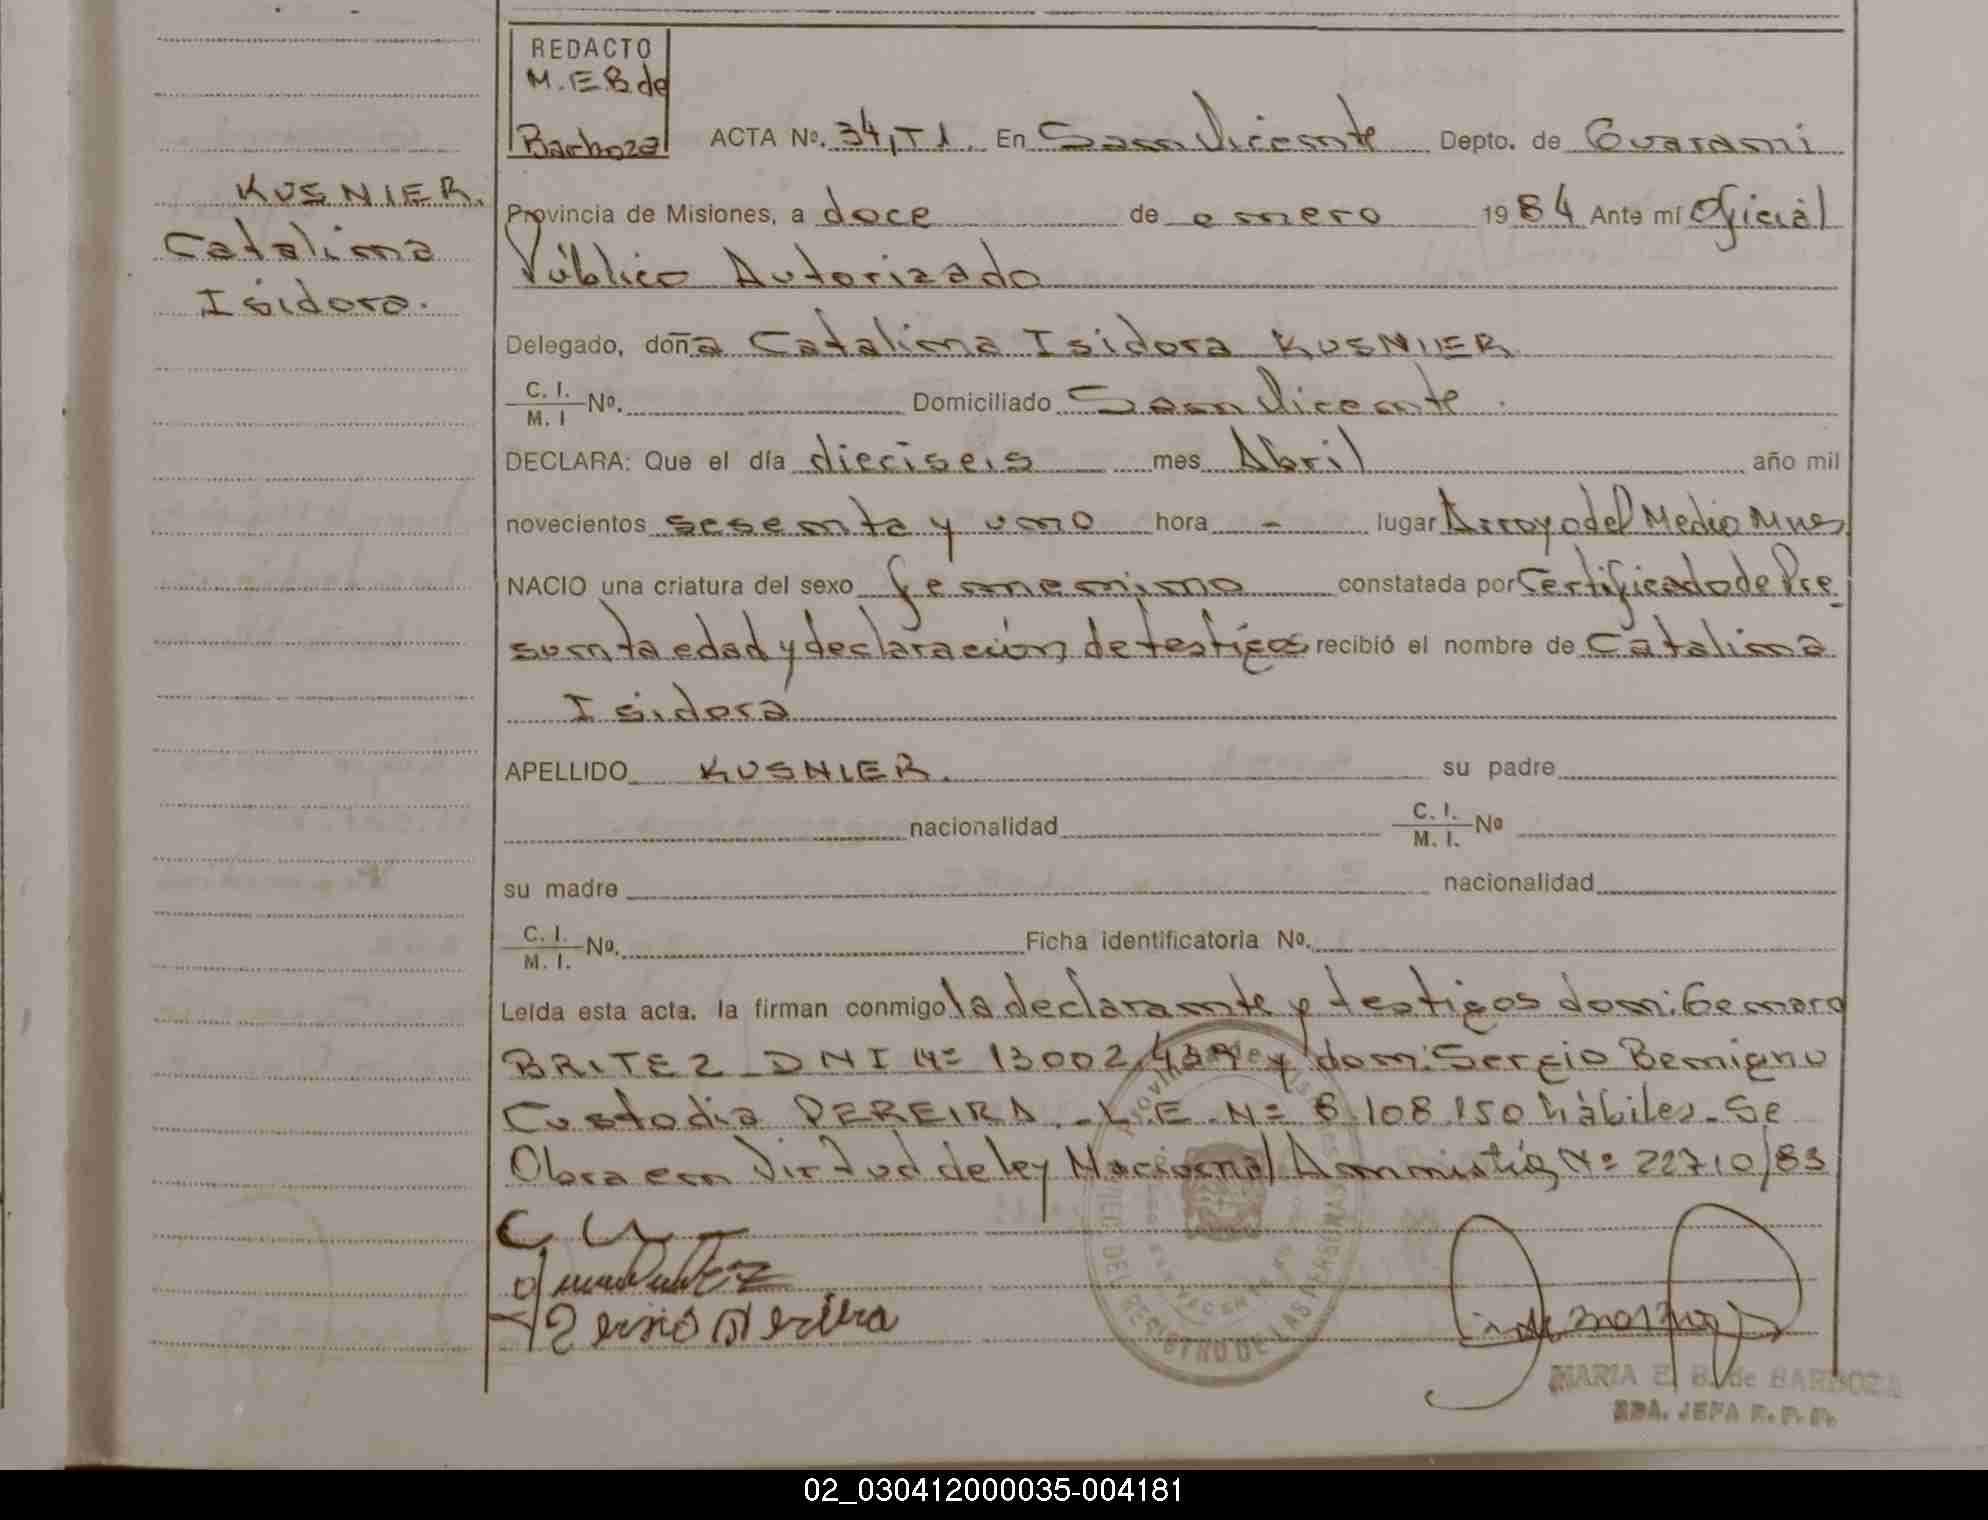 REDACTO
M. E B de
Barboza
ACTA Nº. 34, T I. En San Vicente Depto. de Guarani
KUSNIER.
Catalina
Isidora.
Provincia de Misiones, a doce de enero 1984 Ante mí Oficial
Público Autorizado
Delegado, doña Catalina Isidora KUSNIER
C. I.
M. I Nº. Domiciliado San Vicente.
DECLARA: Que el día dieciseis mes Abril año mil
novecientos sesenta y uno hora - lugar Arroyo del Medio Mnes
NACIO una criatura del sexo femenino constatada por Certificado de Pre
sunta edad y declaración de testigos recibió el nombre de Catalina
Isidora
APELLIDO KUSNIER. su padre
nacionalidad C. I.
M. I. Nº
su madre nacionalidad
C. I.
M. I. Nº. Ficha identificatoria Nº.
Leída esta acta, la firman conmigo la declarante y testigos don: Genaro
BRITEZ DNI Nº 13002, y don: Sergio Benigno
Custodia PEREIRA.- L.E. Nº 8.108.150 hàbiles- Se
Obra en virtud de ley Nacional Amnistía Nº 22710/83
Sergio Pereira
REGISTRO DE LAS PERSONAS
MARIA E. B. de BARBOZA
02_030412000035-004181